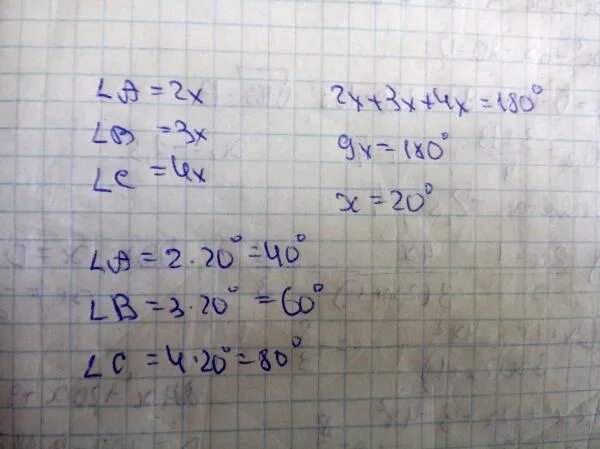 ∠A = 2x
∠B = 3x
∠C = 4x
2x+3x+4x=180°
9x=180°
x=20°
∠A = 2·20°=40°
∠B = 3·20°=60°
∠C = 4·20°=80°